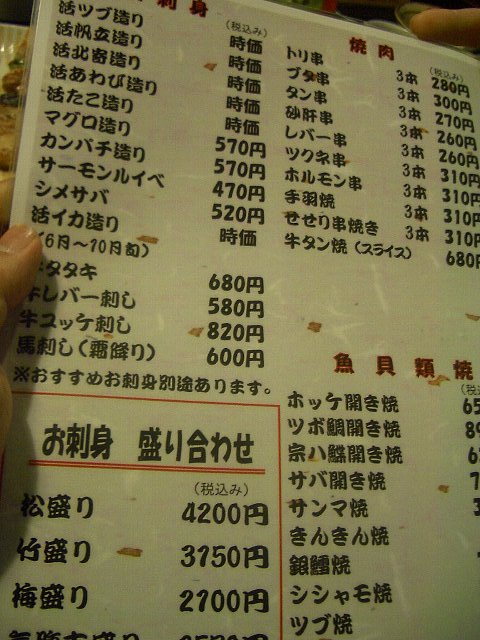 刺身
(税込み)
活ツブ造り 時価
活帆立造り 時価
活北寄造り 時価
活あわび造り 時価
活たこ造り 時価
マグロ造り 570円
カンパチ造り 570円
サーモンルイベ 470円
シメサバ 520円
活イカ造り 時価
(6月〜10月旬)
タタキ 680円
牛レバー刺し 580円
牛ユッケ刺し 820円
馬刺し(霜降り) 600円
※おすすめお刺身別途あります。
お刺身 盛り合わせ
(税込み)
松盛り 4200円
竹盛り 3150円
梅盛り 2100円
焼肉
(税込み)
トリ串 3本 280円
ブタ串 3本 300円
タン串 3本 270円
砂肝串 3本 260円
レバー串 3本 260円
ツクネ串 3本 310円
ホルモン串 3本 310円
手羽焼 3本 310円
せせり串焼き 3本 310円
牛タン焼(スライス) 680
魚貝類焼
(税
ホッケ開き焼
ツボ鯛開き焼
宗ハ鰈開き焼
サバ開き焼
サンマ焼
きんきん焼
銀鱈焼
シシャモ焼
ツブ焼